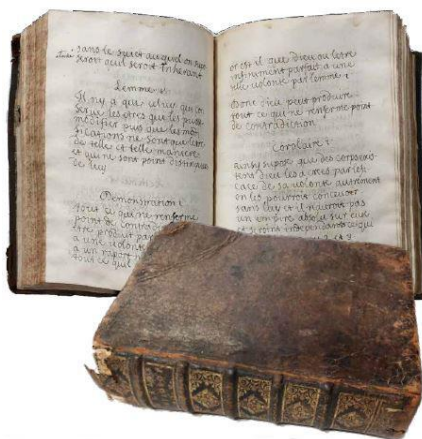 sans le sujet auquel on
seroit quil seroit Inherant
Lemme
Il ny a que celuy qui con
serve les etres qui les puisse
modifier puis que les modi
fications ne sont que letre
de telle et telle maniere
et qui ne sont point distinctes
de luy
Demonstration :
tout ce qui ne renferme
point de contra
etre produit par
a une volonte
a un raport
tout ce que
or est il que dieu ou letre
infiniment parfait a une
telle volonte par lemme
Donc dieu peut produire
tout ce qui ne renferme point
de contradiction
Corolaire :
Ainsy suposé que des corps exis
tens dieu les a crees par leffi
cace de sa volonte autrement
on les pourroit concevoir
sans luy et il nauroit pas
un empire absolu sur eux
et seroins independans ce qui